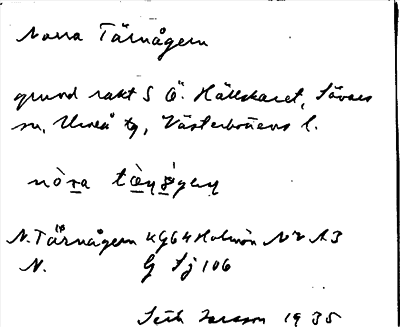 Norra Tärnågern
grund rakt S Ö. Hällskaret, Sävars
sn, Umeå tg, Västerbottens l.
nò̱ra
N. Tärnågern 4 g 64 Holmön NV A3
N. G Sj 106
Seth Larsson 1935